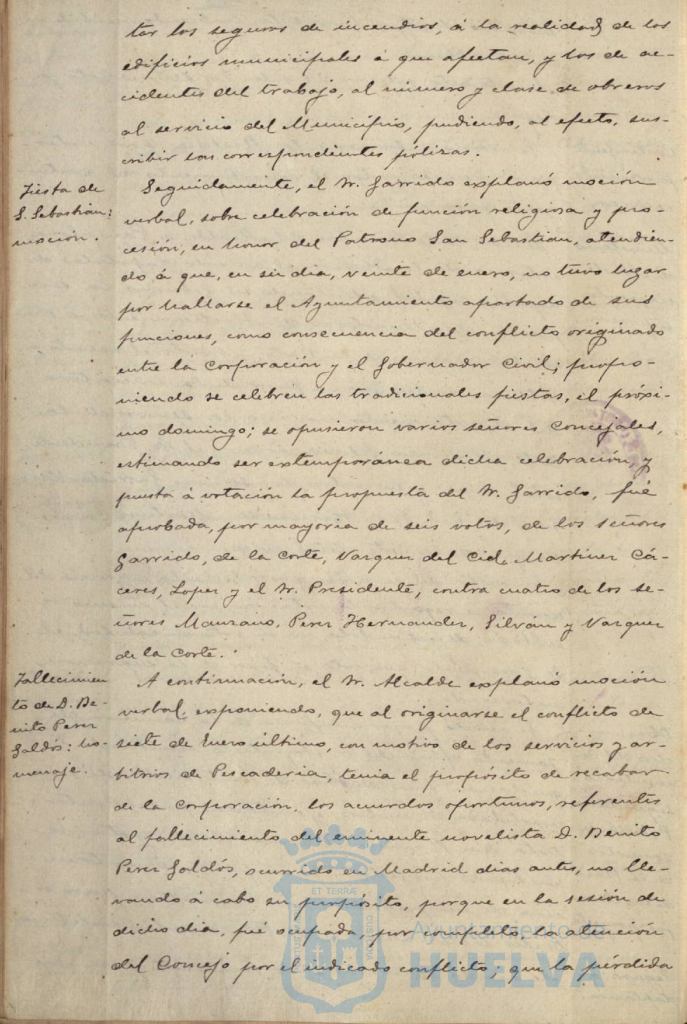 tar los seguros de incendios, á la realidad de los
edificios municipales á que afectan, y los de ac-
cidentes del trabajo, al número y clase de obreros
al servicio del Municipio, pudiendo, al efecto, sus-
cribir las correspondientes pólizas.
Fiesta de
S. Sebastián:
moción.
Seguidamente, el Sr. Garrido explanó moción
verbal, sobre celebración de función religiosa y pro-
cesión, en honor del Patrono San Sebastian, atendien-
do á que, en su dia, veinte de enero, no tuvo lugar
por hallarse el Ayuntamiento apartado de sus
funciones, como consecuencia del conflicto originado
entre la Corporación y el Gobernador Civil; propo-
niendo se celebren las tradicionales fiestas, el próxi-
mo domingo; se opusieron varios señores Concejales,
estimando ser extemporánea dicha celebración, y
puesta á votación la propuesta del Sr. Garrido, fué
aprobada, por mayoria de seis votos, de los señores
Garrido, de la Corte, Vazquez del Cid, Martinez Cá-
ceres, Lopez y el Sr. Presidente, contra cuatro de los se-
ñores Manzano, Perez Hernandez, Silván y Vazquez
de la Corte.
Fallecimien
to de D. Be-
nito Perez
Galdós: ho-
menaje.
A continuación, el Sr. Alcalde explanó moción
verbal, exponiendo, que al originarse el conflicto de
siete de Enero último, con motivo de los servicios y ar-
bitrios de Pescaderia, tenia el propósito de recabar
de la Corporación, los acuerdos oportunos, referentes
al fallecimiento del eminente novelista D. Benito
Perez Galdós, ocurrido en Madrid dias antes, no lle-
vando á cabo su propósito, porque en la sesión de
dicho dia, fué ocupada, por completo, la atención
del Concejo por el indicado conflicto; que la pérdida
ET TERRÆ
Ayuntamiento de
HUELVA